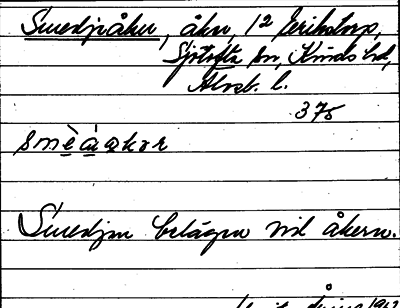 Smedjeåker, åker, 12 Erikstorp,
Sjötofta sn, Kinds hd,
Älvsb. l.
375
Smedjan belägen vid åkern.